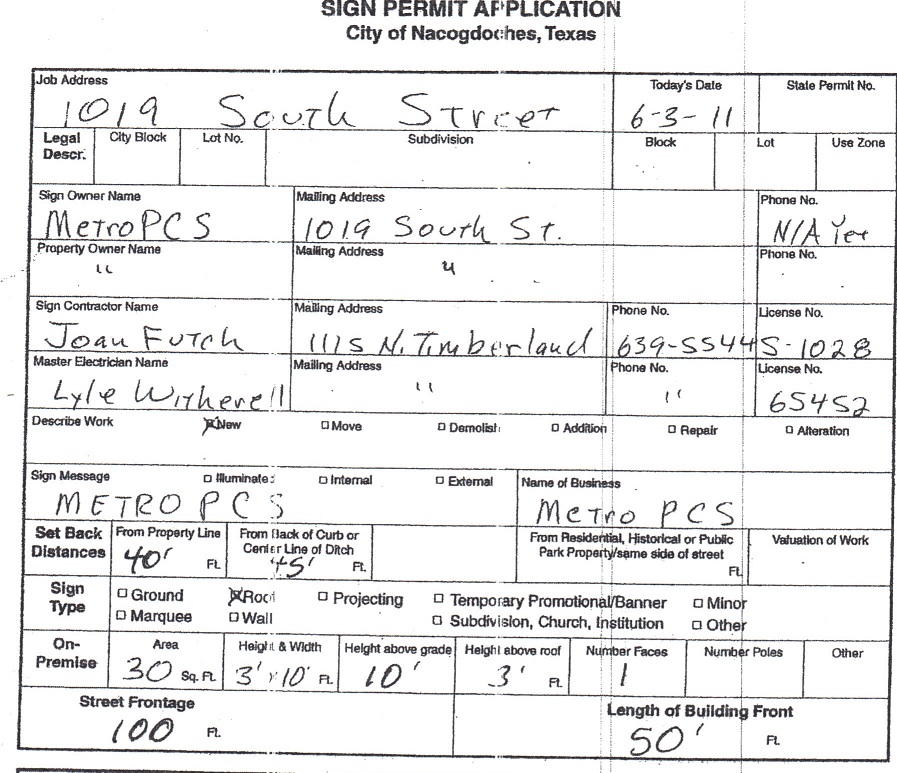 SIGN PERMIT APPLICATION
City of Nacogdoches, Texas
Job Address Today's Date State Permit No.
1019 South Street 6-3-11
Legal Descr. City Block Lot No. Subdivision Block Lot Use Zone
Sign Owner Name Mailing Address Phone No.
MetroPCS 1019 South St. N/A Yet
Property Owner Name Mailing Address Phone No.
" "
Sign Contractor Name Mailing Address Phone No. License No.
Joan Futch 1115 N. Timberland 639-5544 S-1028
Master Electrician Name Mailing Address Phone No. License No.
Lyle Witherell " " 65452
Describe Work ☒ New □ Move □ Demolish □ Addition □ Repair □ Alteration
Sign Message □ Illuminated □ Internal □ External Name of Business
METRO PCS Metro PCS
Set Back Distances From Property Line From Back of Curb or Center Line of Ditch From Residential, Historical or Public Park Property/same side of street Valuation of Work
40' Ft. 45' Ft. Ft.
Sign Type □ Ground ☒ Roof □ Projecting □ Temporary Promotional/Banner □ Minor
□ Marquee □ Wall □ Subdivision, Church, Institution □ Other
On-Premise Area Height & Width Height above grade Height above roof Number Faces Number Poles Other
30 Sq. Ft. 3' x 10' Ft. 10' 3' Ft. 1
Street Frontage Length of Building Front
100 Ft. 50' Ft.